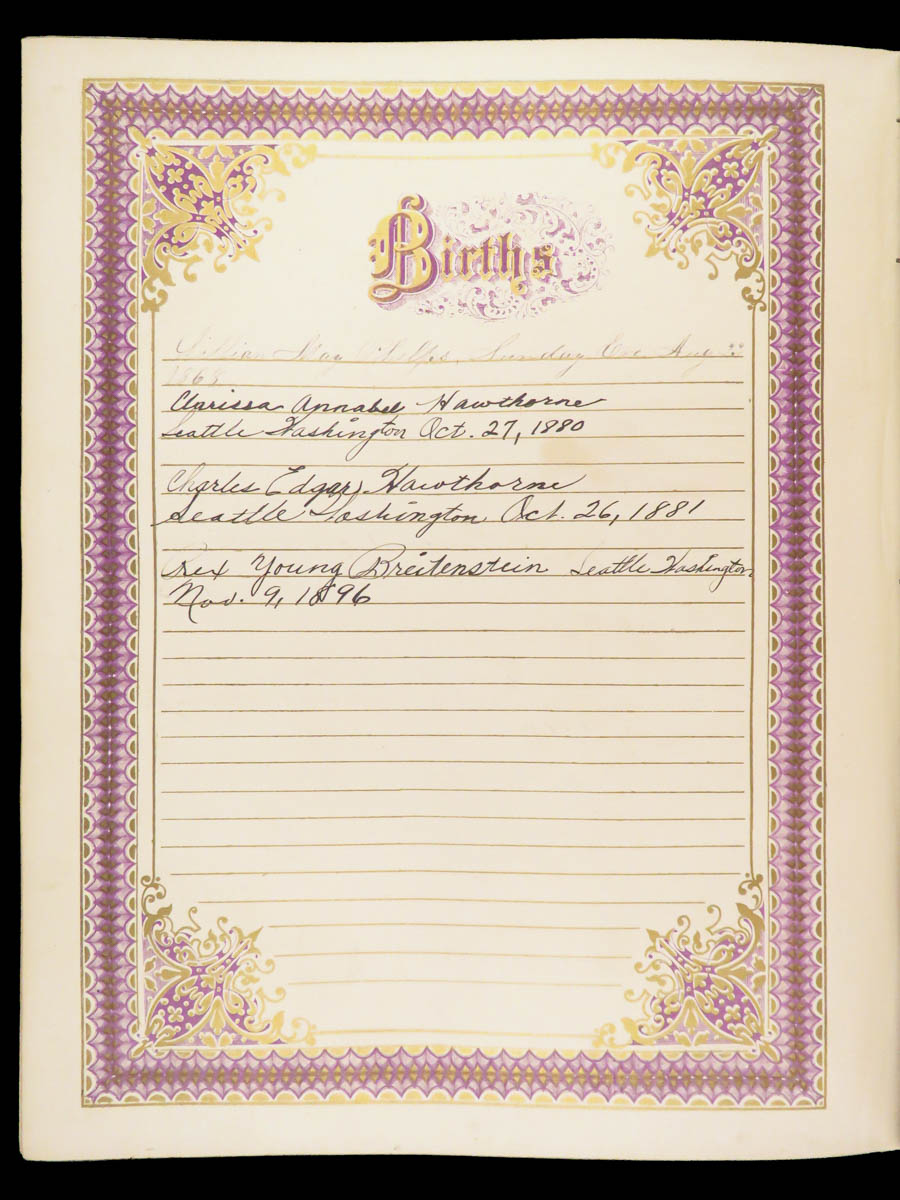 Births
Lillian May Phelps, Sunday Eve Aug
1868
Clarissa Annabel Hawthorne
Seattle Washington Oct. 27, 1880
Charles Edgar Hawthorne
Seattle Washington Oct. 26, 1881
Rex Young Breitenstein Seattle Washington
Nov. 9, 1896